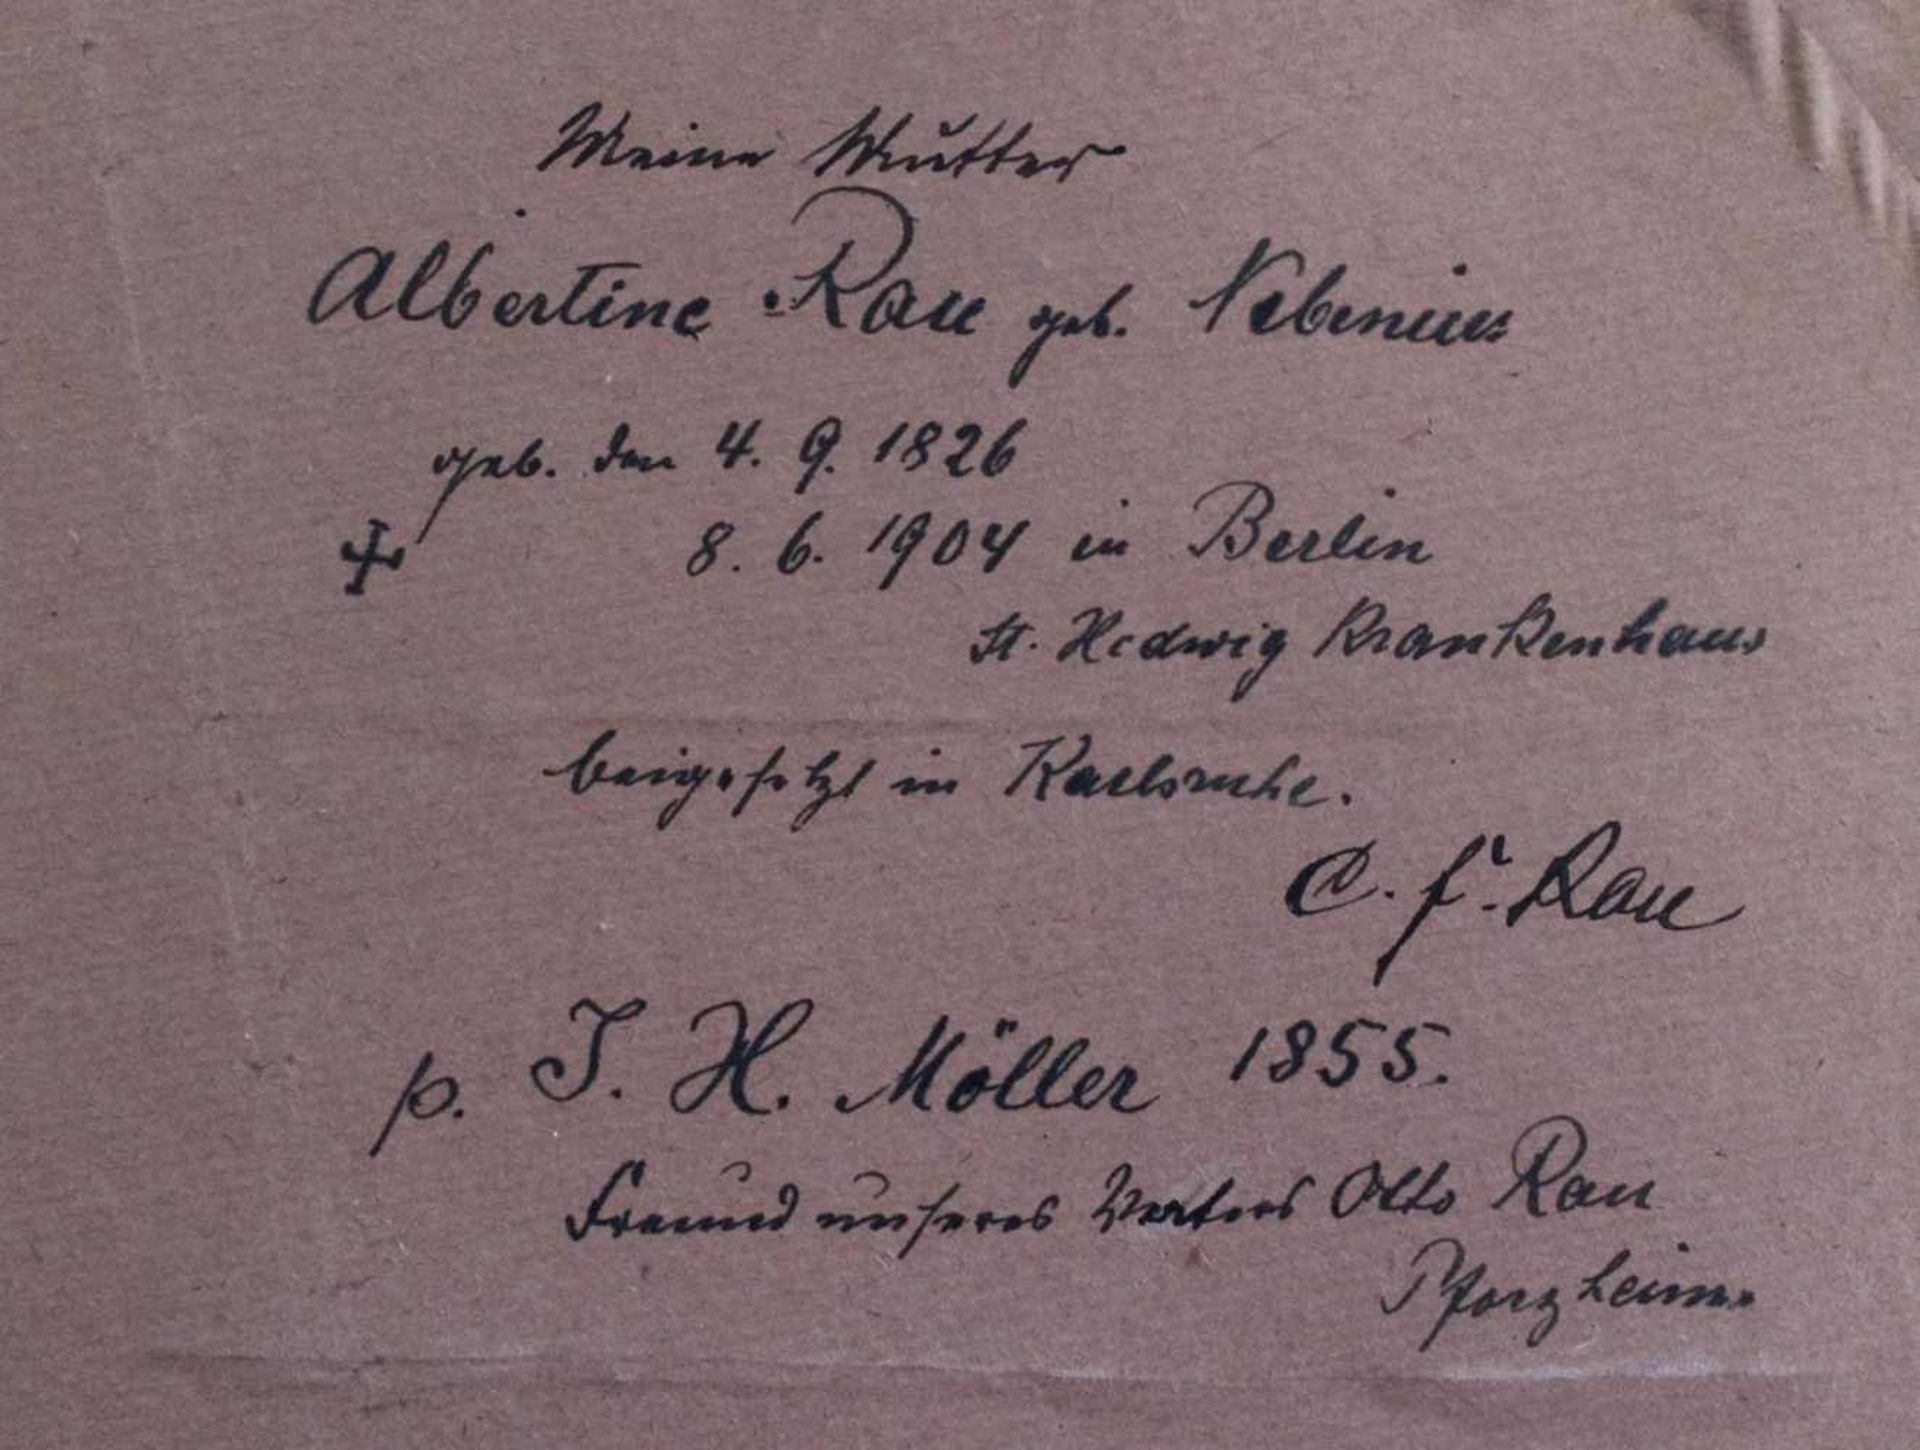 Meine Mutter
Albertine Rau geb. Nebenius
geb. den 4. 9. 1826
✠ 8. 6. 1904 in Berlin
St. Hedwig Krankenhaus
beigesetzt in Karlsruhe.
C. F. Rau
p. J. H. Möller 1855.
Freund unseres Vaters Otto Rau
Pforzheim